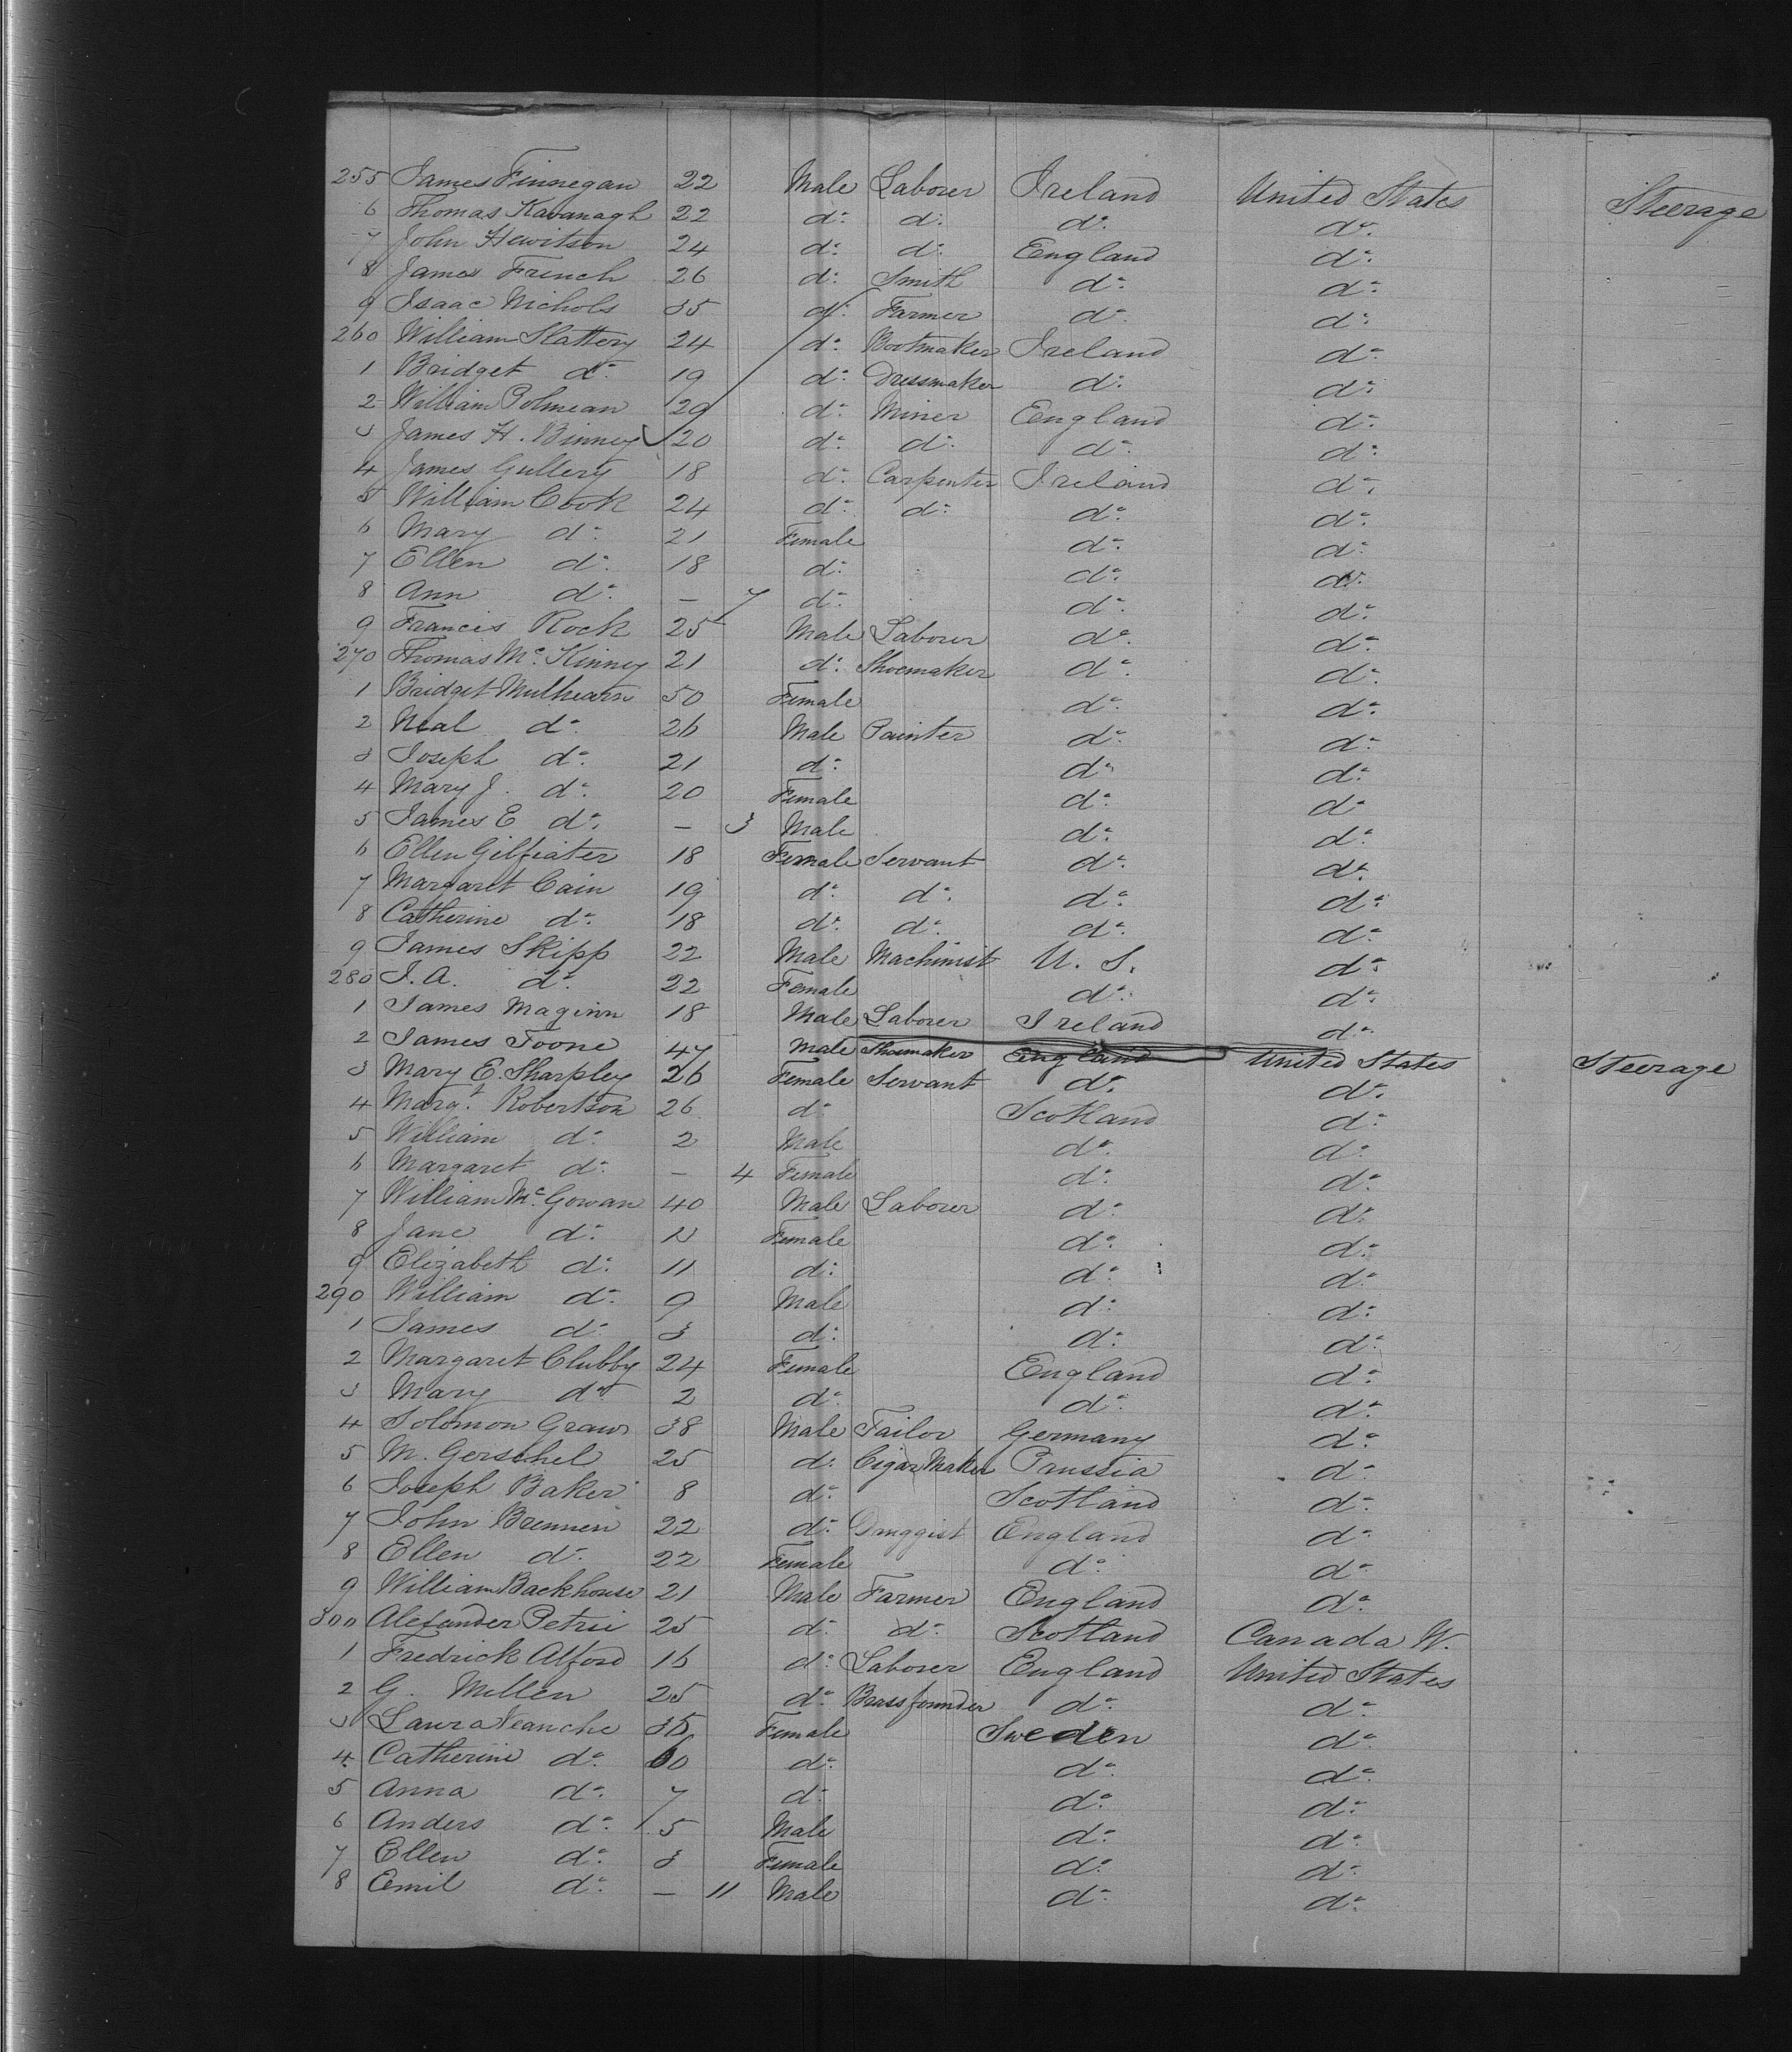 255 James Finnegan 22 Male Laborer Ireland United States Steerage
6 Thomas Kavanagh 22 do. do. do. do.
7 John Hewitson 24 do. do. England do.
8 James French 26 do. Smith do. do.
9 Isaac Nichols 35 do. Farmer do. do.
260 William Slattery 24 do. Bootmaker Ireland do.
1 Bridget do. 19 do. Dressmaker do. do.
2 William Polmean 29 do. Miner England do.
3 James H. Binney 20 do. do. do. do.
4 James Gullery 18 do. Carpenter Ireland do.
5 William Cook 24 do. do. do. do.
6 Mary do. 21 Female do. do.
7 Ellen do. 18 do. do. do.
8 Ann do. — 7 do. do. do.
9 Francis Rock 25 Male Laborer do. do.
270 Thomas Mc. Kinney 21 do. Shoemaker do. do.
1 Bridget Mulhearn 50 Female do. do.
2 Neal do. 26 Male Painter do. do.
3 Joseph do. 21 do. do. do.
4 Mary J. do. 20 Female do. do
5 James E do. — 3 Male do. do.
6 Ellen Gilfeater 18 Female Servant do. do.
7 Margaret Cain 19 do. do. do. do.
8 Catherine do. 18 do. do. do. do.
9 James Skipp 22 Male Machinist U. S. do.
280 J. A. do. 22 Female do. do.
1 James Maginn 18 Male Laborer Ireland do.
2 James Toone 47 Male Shoemaker England United States Steerage
3 Mary E. Sharpley 26 Female Servant do. do.
4 Margt. Robertson 26 do. Scotland do.
5 William do. 2 Male do. do.
6 Margaret do. — 4 Female do. do.
7 William Mc. Gowan 40 Male Laborer do. do.
8 Jane do. Female do. do.
9 Elizabeth do. 11 do. do. do.
290 William do. 9 Male do. do.
1 James do. 3 do. do. do.
2 Margaret Clubby 24 Female England do.
3 Mary do. 2 do. do. do.
4 Solomon Graws 38 Male Tailor Germany do.
5 M. Gerschel 25 do. Cigar Maker Prussia do.
6 Joseph Baker 8 do. Scotland do.
7 John Brennen 22 do. Druggist England do.
8 Ellen do. 22 Female do. do.
9 William Backhouse 21 Male Farmer England do.
300 Alexander Petrie 25 do. do. Scotland Canada W.
1 Fredrick Alford 16 do. Laborer England United States
2 G. Millen 25 do. Brassfounder do. do.
3 Laura 36 Female Sweden do.
4 Catherine do. 60 do. do. do.
5 Anna do. 7 do. do. do.
6 Anders do. 5 Male do. do.
7 Ellen do. 3 Female do. do.
8 Emil do. — 11 Male do. do.